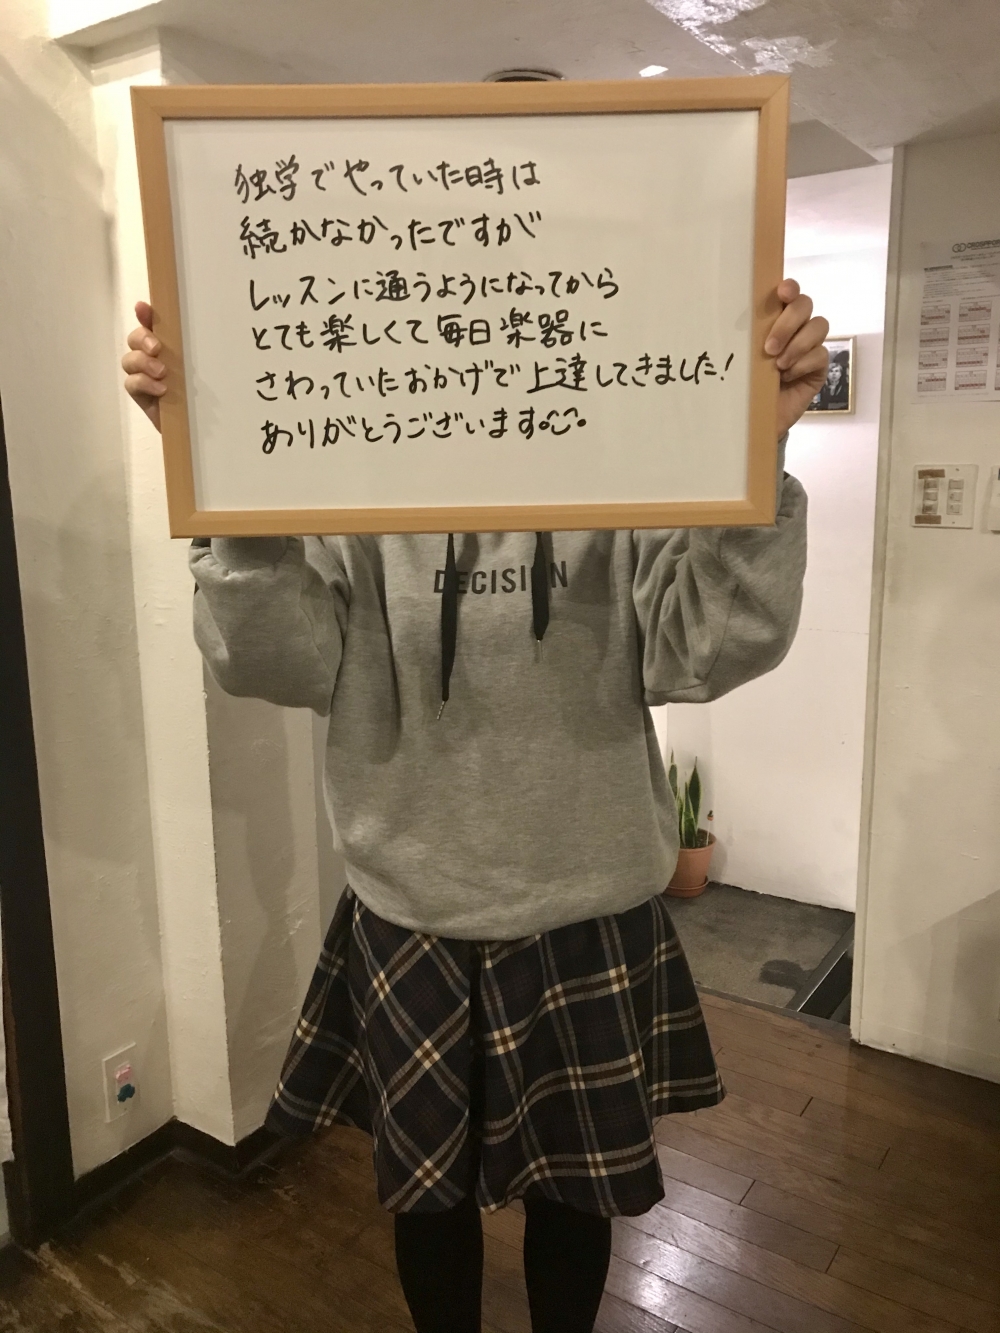 独学でやっていた時は
続かなかったですが
レッスンに通うようになってから
とても楽しくて毎日楽器に
さわっていたおかげで上達してきました!
ありがとうございます
DECISION